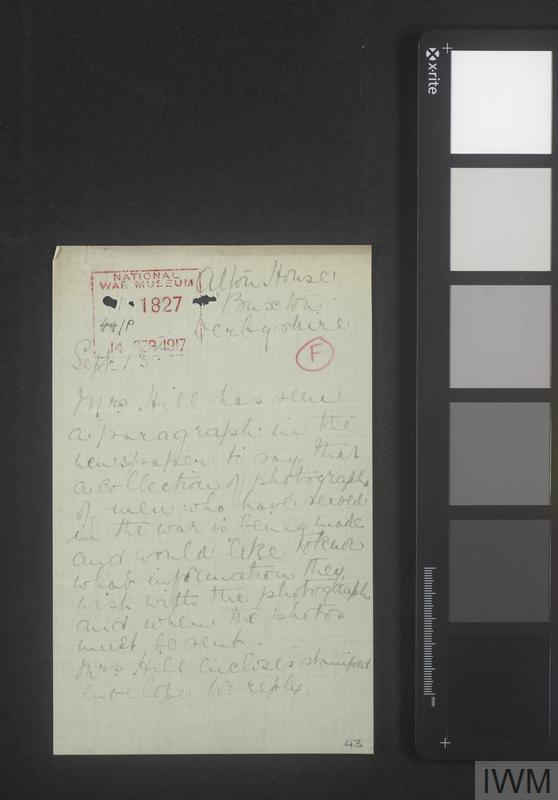 NATIONAL
WAR MUSEUM
1827
44/P
14 SEP 1917
Alton House
Buxton
Derbyshire
Sept. 13
F
Mrs Hill has seen
a paragraph in the
newspaper to say that
a collection of photographs
of men who have served
in the war is being made
and would like to know
what information they
wish with the photograph
and when the photos
must be sent.
Mrs Hill encloses stamped
envelope for reply.
43
x-rite
mm
IWM